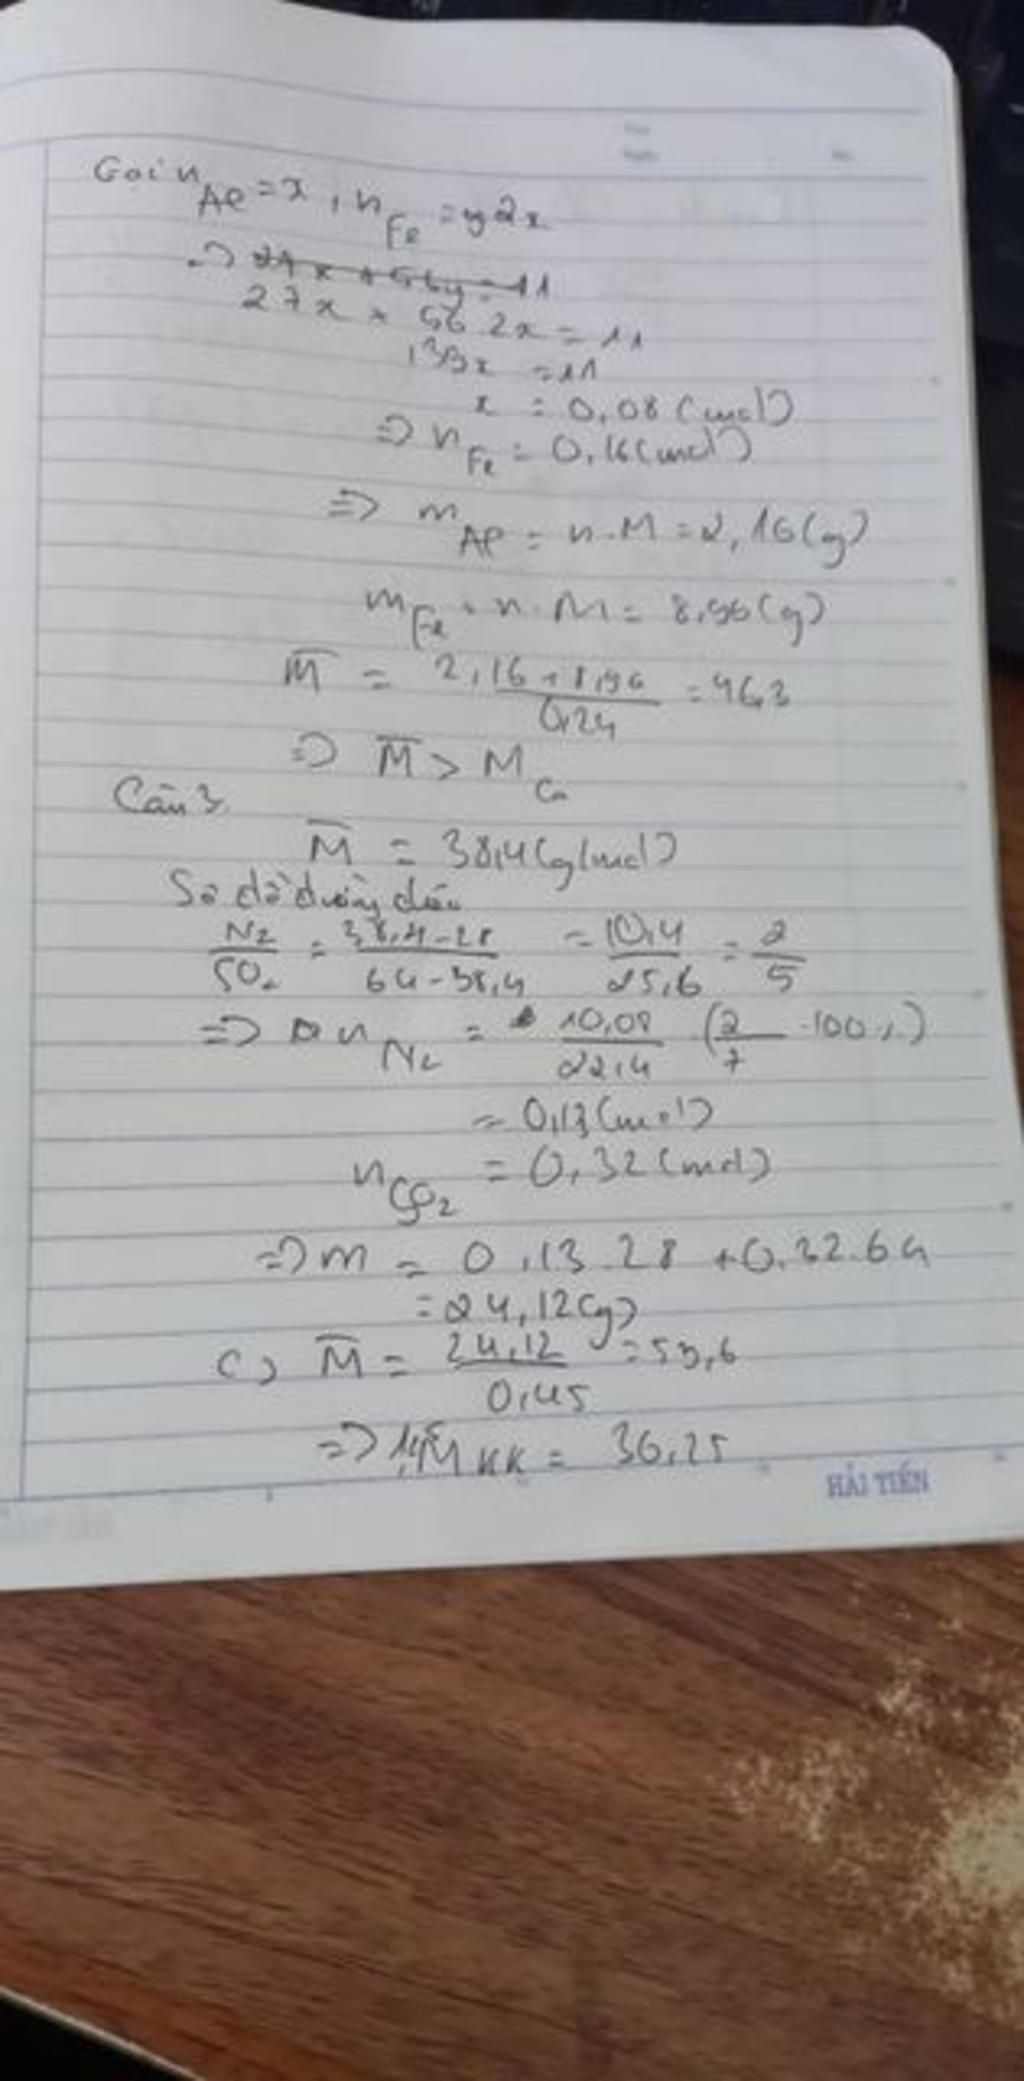 Gọi n Al = x, n Fe = y 2x
=> 27x + 56y = 11
27x + 56 2x = 11
139x = 11
x = 0,08 (mol)
=> n Fe = 0,16 (mol)
=> m Al = n.M = 2,16 (g)
m Fe = n.M = 8,96 (g)
M̅ = (2,16 + 8,96)/0,24 = 46,3
=> M̅ > M Ca
Câu 3
M̅ = 38,4 (g/mol)
Sơ đồ đường chéo
N2/SO2 = (38,4-28)/(64-38,4) = 10,4/25,6 = 2/5
=> n N2 = 10,08/22,4 (2/7 .100%)
= 0,13 (mol)
n SO2 = 0,32 (mol)
=> m = 0,13.28 + 0,32.64
= 24,12 (g)
c) M̅ = 24,12/0,45 = 53,6
KK = 36,25
HẢI TIẾN